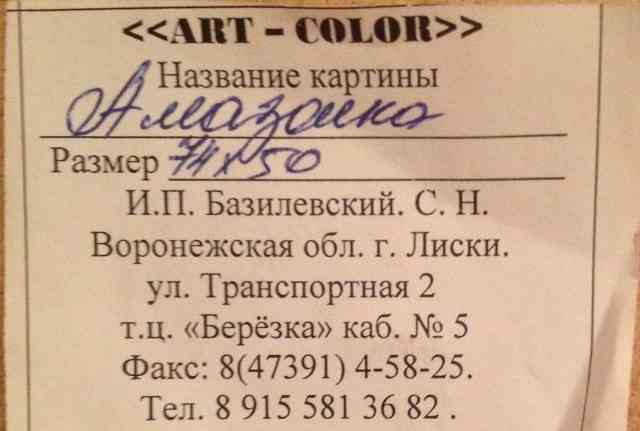 <<ART - COLOR>>
Название картины
Амазонка
Размер 74х50
И.П. Базилевский. С. Н.
Воронежская обл. г. Лиски.
ул. Транспортная 2
т.ц. «Берёзка» каб. № 5
Факс: 8(47391) 4-58-25.
Тел. 8 915 581 36 82 .